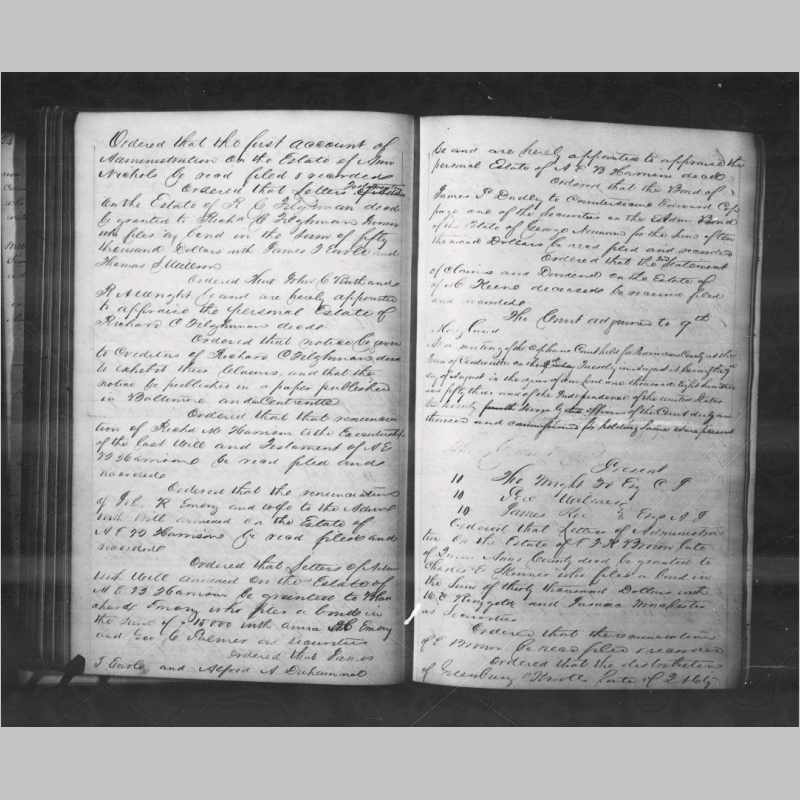 Ordered that the first account of
Administration on the Estate of Ann
Nichols be read filed & recorded
Ordered that Letters
on the Estate of R C Tilghman decd
be granted to Richd C Tilghman Junior
who files a bond in the sum of fifty
thousand Dollars with James T Earle and
Thomas
Ordered that John C and
R A Wright be and are hereby appointed
to appraise the personal Estate of
Richard C Tilghman decd
Ordered that notice be given
to Creditors of Richard C Tilghman decd
to exhibit their Claims, and that the
notice be publishes in a paper publishes
in Baltimore and Centreville
Ordered that that renuncia
tion of Richd M Harrison to the Executorship
of the last Will and Testament of A E
B Harrison be read filed and
recorded
Ordered that the renunciation
of R Emory and wife to the Admn
with Will annexed on the Estate of
A E B Harrison be read filed and
recorded
Ordered that Letters of Adm
with Will annexed on the Estate of
A E B Harrison be granted to Blan
chard Emory who files a bond in
the sum of $15000 with Emory
and Geo C Palmer as securities
Ordered that James
T Earle and Alfred A
be and are hereby appointed to appraise the
personal Estate of A E B Harrison decd
Ordered that the Bond of
James P Dudley to Countersecure Edward
page one of the securities on the Admn Bond
of the Estate of George Newnam for the sum of ten
thousand Dollars be read filed and recorded
Ordered that the Statement
of Claims and Dividend on the Estate of
Keene deceased be received filed
and recorded
The Court adjourns to 9th
Aug
At a meeting of the Orphans Court held for County at the
on the Tuesday in August it being the 9th
day of August in the year of our Lord one thousand Eight hundred
and fifty three and of the Independence of the United States
the Seventy officers of the Court duly au
thorised and commissioned for holding same were present
Present
10 Tho Wright Esq C J
10 Geo Palmer
10 James Esqs A J
Ordered that Letters of Administra
tion on the Estate of Brown late
of Queen Anns County decd be granted to
Charles E Skinner who files a bond in
the Sum of thirty thousand Dollars with
Ringgold and
as Securities
Ordered that the renunciation
of E Brown be read filed & recorded
Ordered that the distribution
of late of